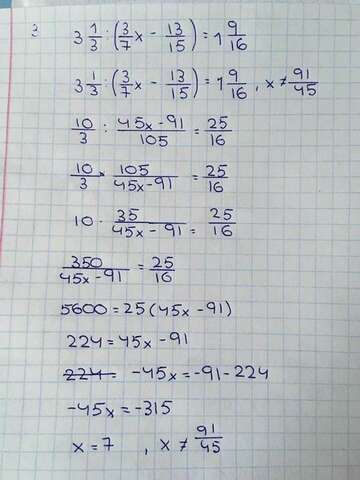 3
3 1/3 : (3/7 x - 13/15) = 1 9/16
3 1/3 : (3/7 x - 13/15) = 1 9/16 , x ≠ 91/45
10/3 : 45x-91/105 = 25/16
10/3 × 105/45x-91 = 25/16
10 · 35/45x-91 = 25/16
350/45x-91 = 25/16
5600 = 25 (45x - 91)
224 = 45x - 91
224 = -45x = -91 - 224
-45x = -315
x = 7 , x ≠ 91/45